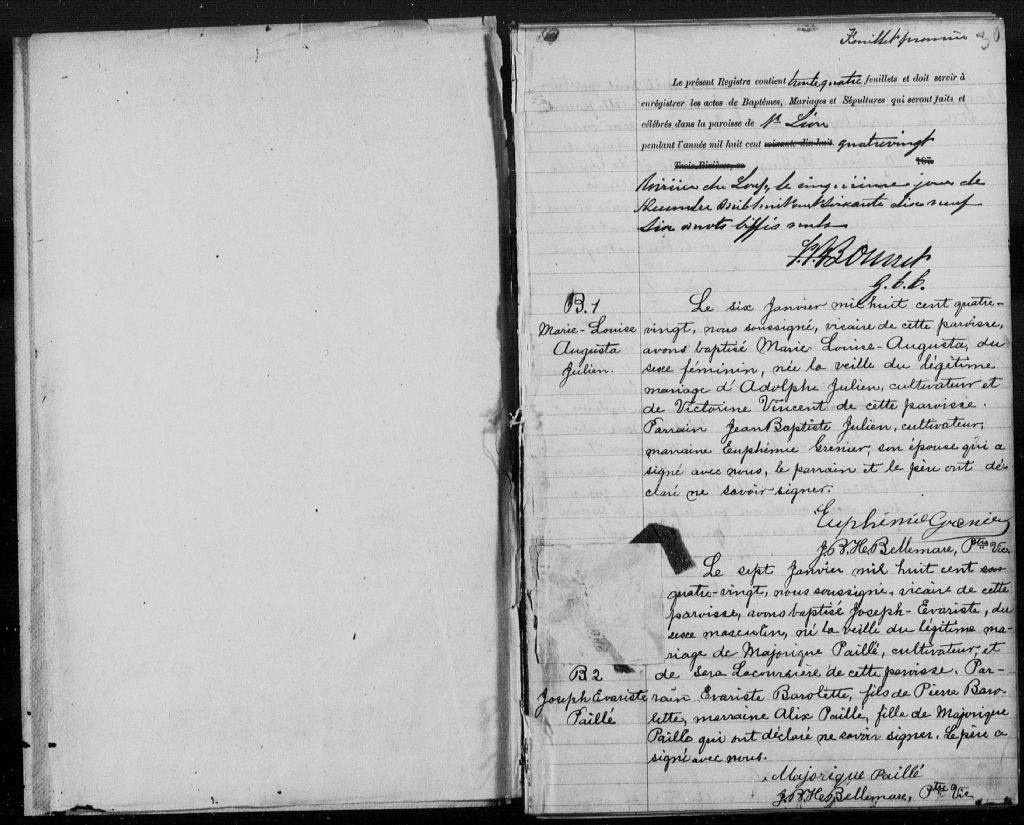 Feuillet premier
Le présent Registre contient trente quatre feuillets et doit servir à
enrégistrer les actes de Baptêmes, Mariages et Sépultures qui seront faits et
célébrés dans la paroisse de St Léon
pendant l'année mil huit cent soixante dix-huit quatrevingt
Trois-Rivières, ce 187
Rivière du Loup, le cinquième jour de
Décembre mil huit cent soixante dix neuf
Six mots biffés nuls
B.1
Marie-Louise
Augusta
Julien.
Le six Janvier mil huit cent quatre-
vingt, nous soussigné, vicaire de cette paroisse,
avons baptisé Marie Louise-Augusta, du
sexe féminin, née la veille du légitime
mariage d'Adolphe Julien, cultivateur et
de Victorine Vincent de cette paroisse.
Parrain Jean Baptiste Julien, cultivateur,
marraine Euphémie Grenier, son épouse qui a
signé avec nous, le parrain et le père ont dé-
claré ne savoir signer.
Euphémie Grenier
J.B.H. Bellemare, Ptre Vic.
B2
Joseph Evariste
Paillé
Le sept Janvier mil huit cent
quatre-vingt, nous soussigné, vicaire de cette
paroisse, avons baptisé Joseph-Evariste, du
sexe masculin, né la veille du légitime ma-
riage de Majorique Paillé, cultivateur, et
de Sara Lacoursière de cette paroisse. Par-
rain Evariste Barolette, fils de Pierre Baro-
lette, marraine Alix Paillé, fille de Majorique
Paillé qui ont déclaré ne savoir signer. Le père a
signé avec nous.
Majorique Paillé
J.B.H. Bellemare, Ptre Vic